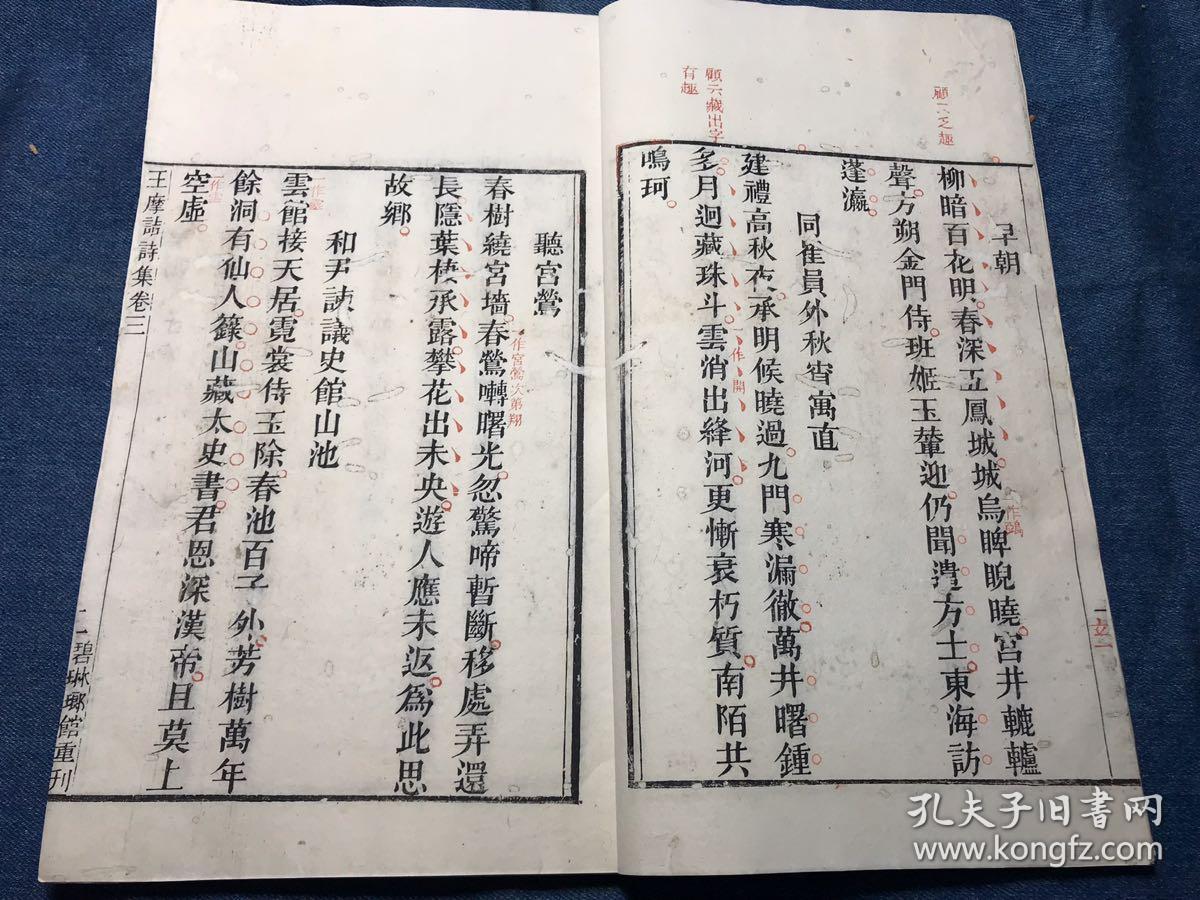 顧云乏趣
早朝
柳暗百花明春深五鳳城城烏睥睨曉宮井轆轤
一作鴉
聲方朔金門侍班姬玉輦迎仍聞遣方士東海訪
蓬瀛
同崔員外秋宵寓直
建禮高秋夜承明候曉過九門寒漏徹萬井曙鍾
顧云藏出字
有趣
多月迥藏珠斗雲消出絳河更慚衰朽質南陌共
一作開
鳴珂
聽宮鶯
春樹繞宮墻春鶯囀曙光忽驚啼暫斷移處弄還
一作宮鶯次第翔
長隱葉棲承露攀花出未央遊人應未返為此思
故鄉
和尹諫議史館山池
雲館接天居霓裳侍玉除春池百子外芳樹萬年
餘洞有仙人籙山藏太史書君恩深漢帝且莫上
空虛
王摩詰詩集卷三
二
碧琳瑯館重刊
孔夫子旧书网
www.kongfz.com